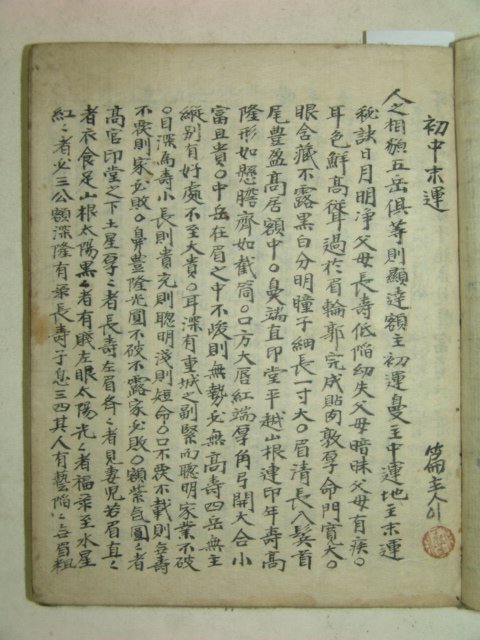 初中末運
篇主人
人之相貌五岳俱等則顯達額主初運鼻主中運地主末運
秘訣日月明净父母長壽低陷幼失父母暗昧父母有疾○
耳色鮮高聳過於眉輪郭完成貼肉敦厚命門寬大○
眼含藏不露黑白分明瞳子細長一寸大○眉清長入鬂首
尾豊盈高居額中○鼻端直印堂平越山根連印年壽高
隆形如懸膽齊如截筒○口方大唇紅端厚角弓開大合小
富且貴○中岳在眉之中不峻則無勢必無高壽四岳無主
縱別有好處不至大貴○耳深有重城之副緊而聰明家業不破
○目深為壽小長則貴光則聰明淺則短命○口不
不喪則家必敗○鼻豊隆光圓不破不露家必敗○額紫氣圓〻者
高官印堂之下土星厚〻者長壽左眉各〻者見妻児若眉直〻
者衣食足山根太陽黒〻者有賊左眼太陽光〻者福禄至水星
紅〻者必三公額深隆有禄長壽子息三四其人有藝陷〻無眉粗